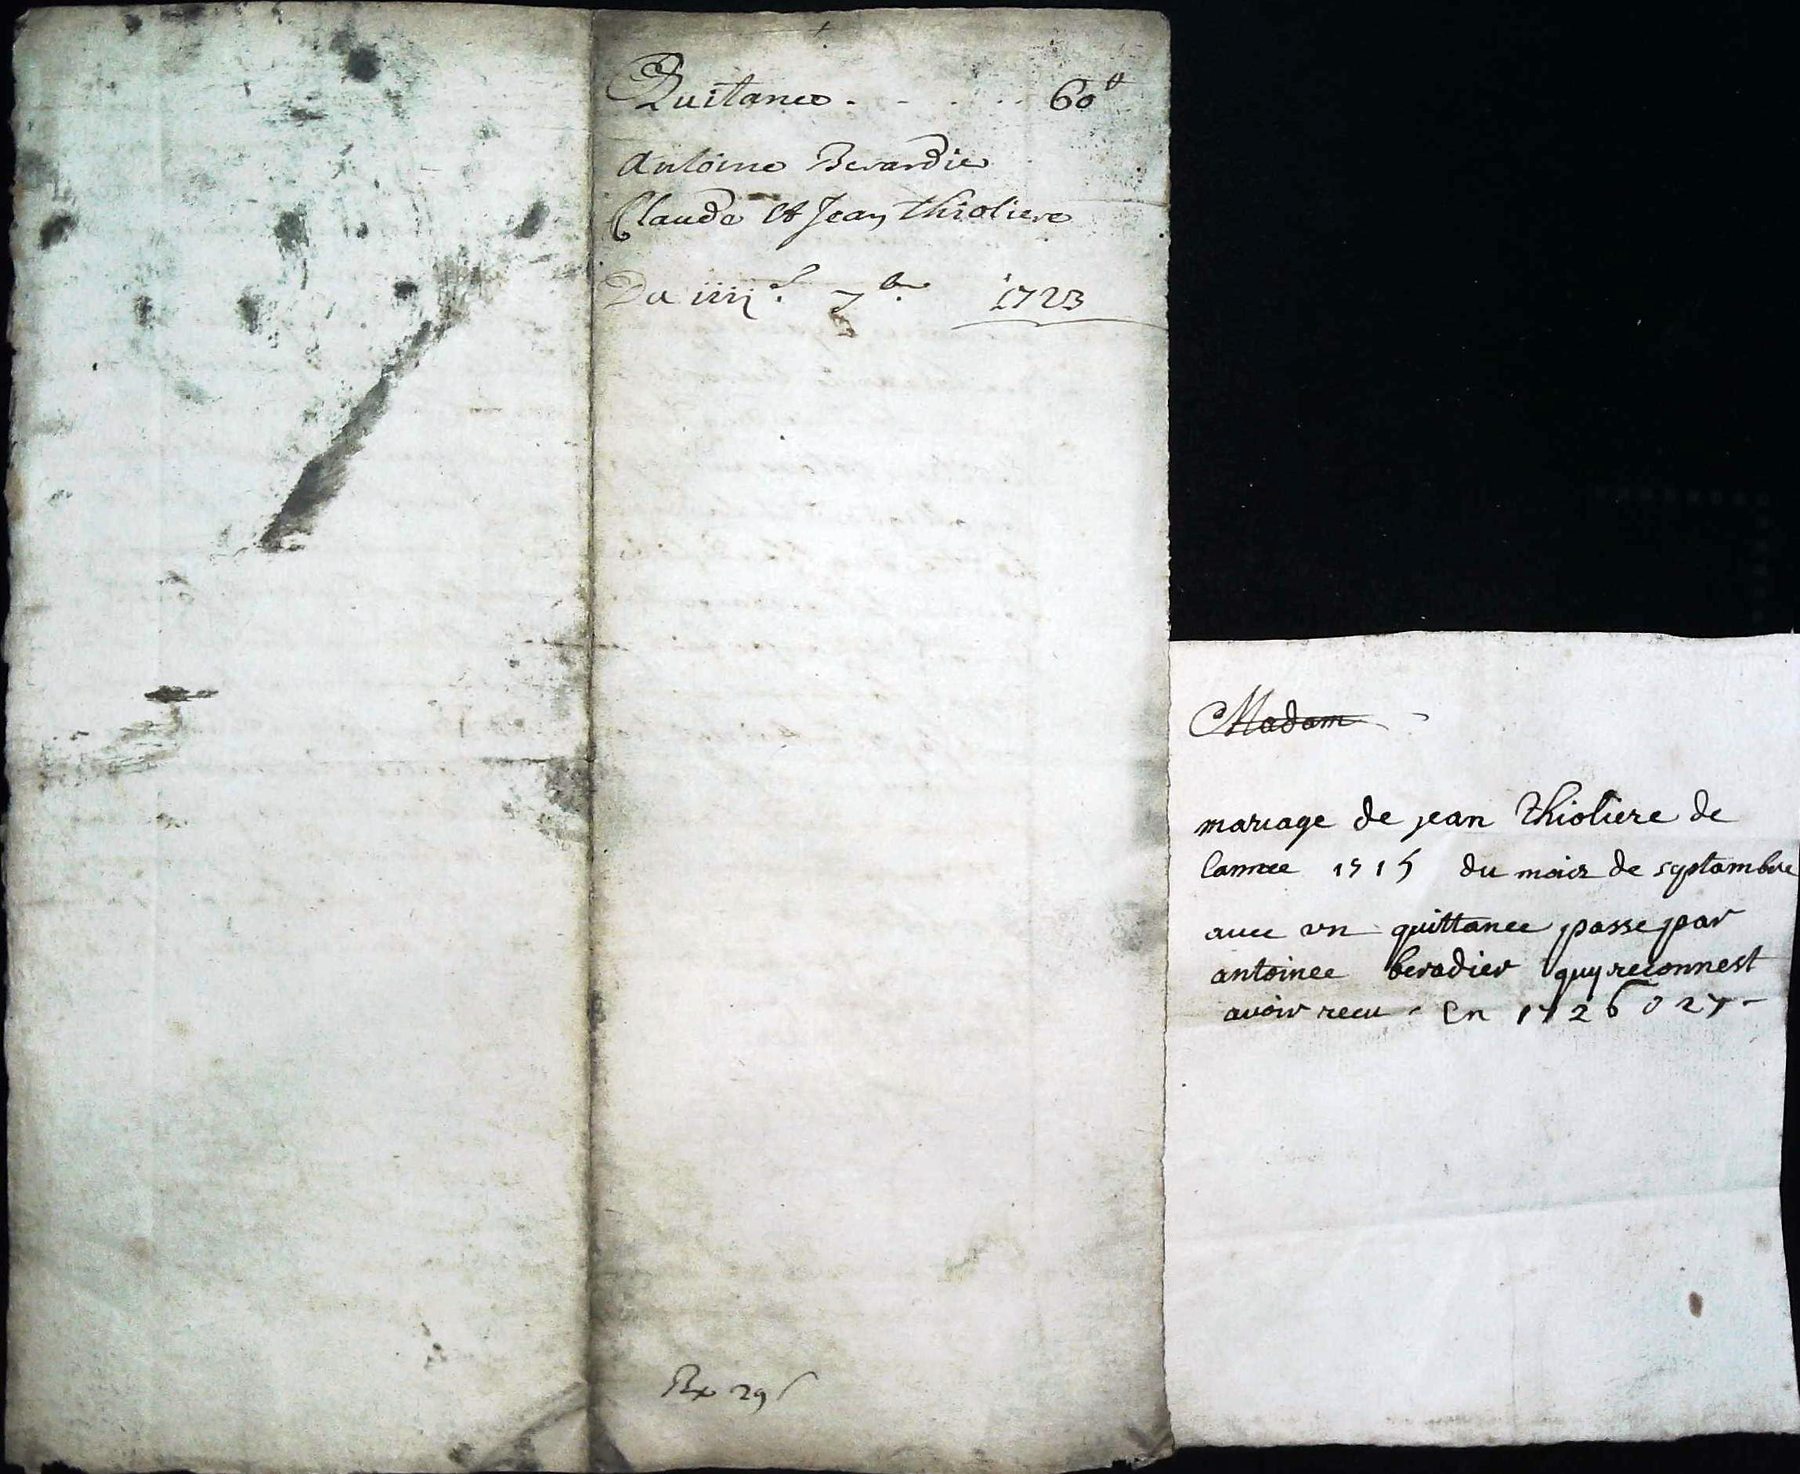 Quitance . . . . . 60#
Antoine Berardie
Claude et Jean thioliere
Du iiiie 7bre 1723
Rx 29s
Madam
mariage de jean thioliere de
lannee 1715 du mois de septambre
avec un quittance passe par
antoinee beradier quy reconnest
avoir recu - En 1726 o 27 -